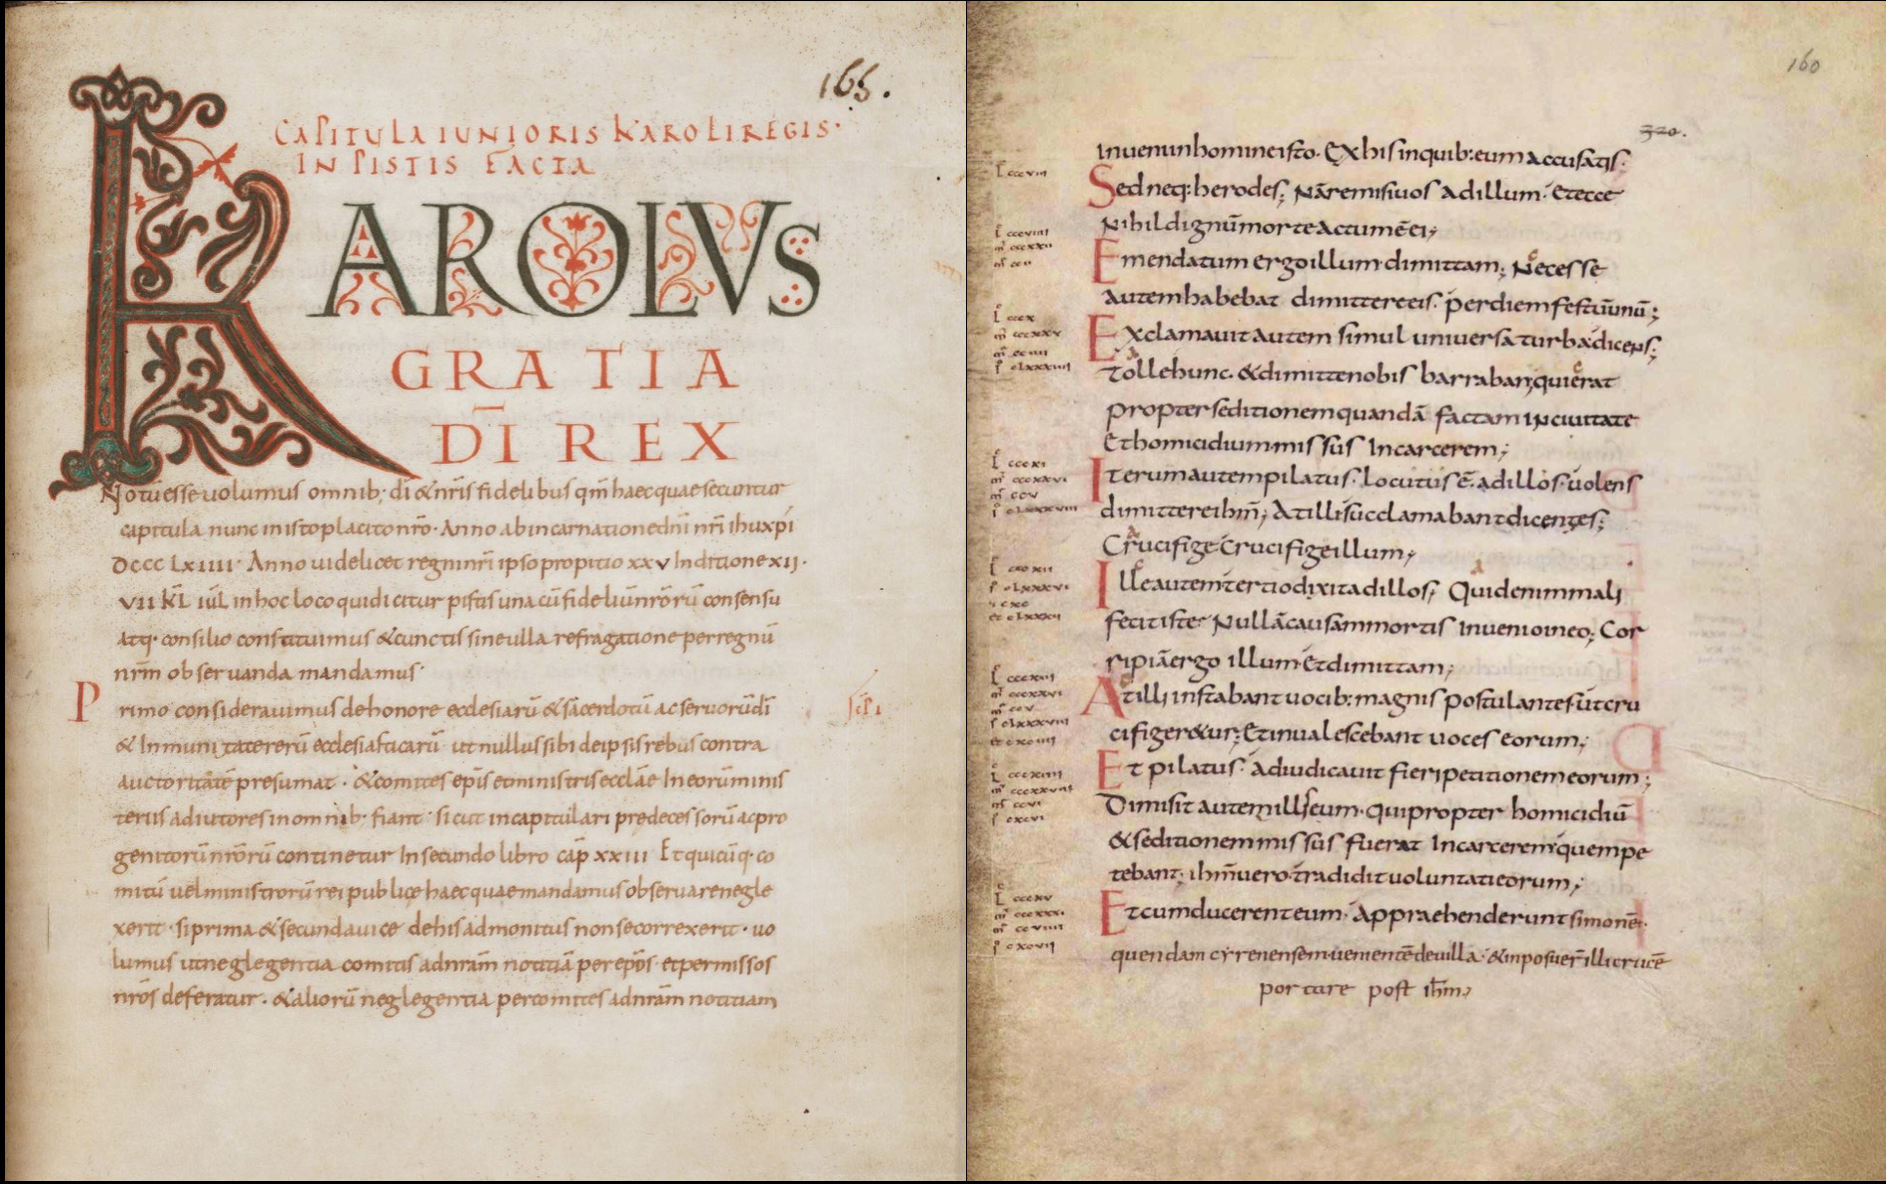 166.
CAPITULA IUNIORIS KAROLI REGIS·
IN PISTIS FACTA
KAROLVS
GRATIA
DĪ REX
Notū esse uolumus omnib; dī & nr̄is fidelibus qm̄ haec quae secuntur
capitula nunc in isto placito nr̄o· Anno ab incarnatione dn̄i nr̄i ihu xp̄i
DCCC LXIIII· Anno uidelicet regni nr̄i ipso propitio xxv Indictione xii·
VII KL̄ IUL̄ in hoc loco qui dicitur pistis una cū fideliū nr̄orū consensu
atq· consilio constituimus & cunctis sine ulla refragatione per regnū
nr̄m obseruanda mandamus·
Primo considerauimus de honore ecclesiarū & sacerdotū ac seruorū dī
& Inmunitate rerū ecclesiasticarū ut nullus sibi de ipsis rebus contra
auctoritatē presumat· & comites ep̄is et ministris eccl̄ae In eorū minis
teriis adiutores in omnib· fiant· sicut in capitulari predecessorū ac pro
genitorū nr̄orū continetur In secundo libro cap̄ xxiii Et quicūq· co
mitū uel ministrorū rei publicę haec quae mandamus obseruare negle
xerit· si prima & secunda uice de his admonitus non se correxerit· uo
lumus ut neglegentia comitis ad nr̄am notitiā per ep̄os et per missos
nr̄os deferatur· & aliorū neglegentia per comites ad nr̄am notitiam
160
320.
inuenio in homine isto· Ex his in quib: eum accusatis·
Sed neq: herodes; Nā remisi uos ad illum· Et ecce
Nihil dignū morte actum ē ei;
Emendatum ergo illum dimittam; Necesse
autem habebat dimittere eis· per diem festū unū;
Exclamauit autem simul uniuersa turba dicens;
Tolle hunc· & dimitte nobis barraban; qui erat
propter seditionem quandā factam in ciuitate
Et homicidium missus In carcerem;
Iterum autem pilatus· Locutus ē· ad illos· uolens
dimittere ihm̄; At illi succlamabant dicentes;
Crucifige· Crucifige illum;
Ille autem tertio dixit ad illos; Quid enim mali
fecit iste· Nullā causam mortis Inuenio in eo; Cor
ripiā ergo illum· Et dimittam;
At illi instabant uocib: magnis postulantes· ut cru
cifiger&ur; Et inualescebant uoces eorum;
Et pilatus· adiudicauit fieri petitionem eorum;
Dimisit autem illis eum· qui propter homicidiū
& seditionem missus fuerat In carcerem· quem pe
tebant; ihm̄ uero· tradidit uoluntati eorum;
Et cum ducerent eum· Appraehenderunt simonē·
quendam cyrenensem· uenientē de uilla· & imposuer̄ illi crucē
portare post ihm̄;